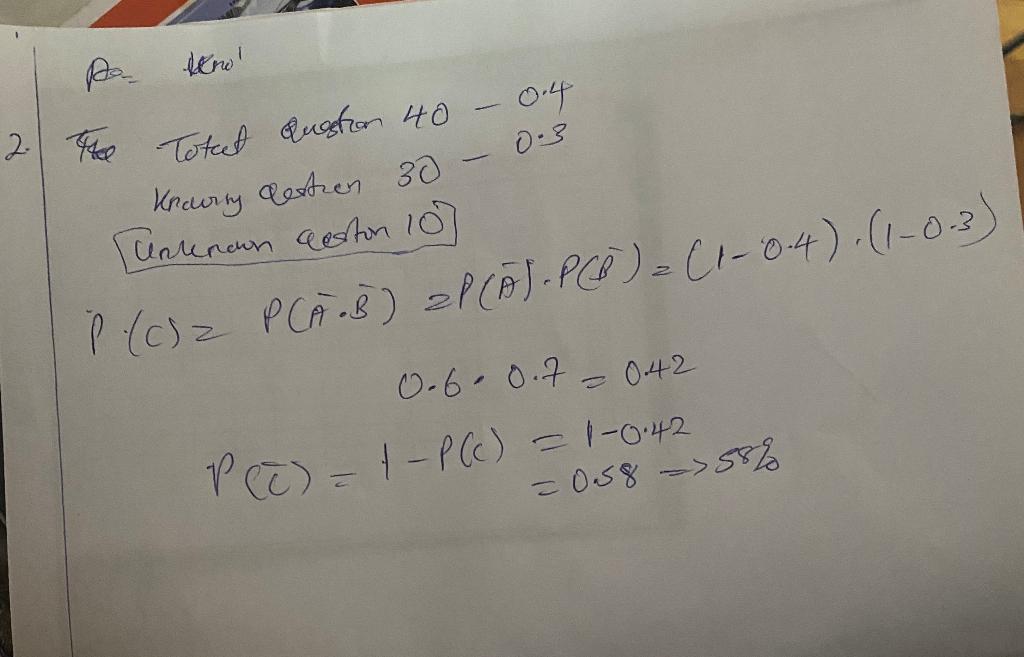 2. The Total Question 40 - 0.4
Knowing Question 30 - 0.3
Unknown Question 10
P(C) = P(Ā.B̄) = P(Ā).P(B̄) = (1-0.4).(1-0.3)
0.6 . 0.7 = 0.42
P(C̄) = 1-P(C) = 1-0.42
= 0.58 -> 58%